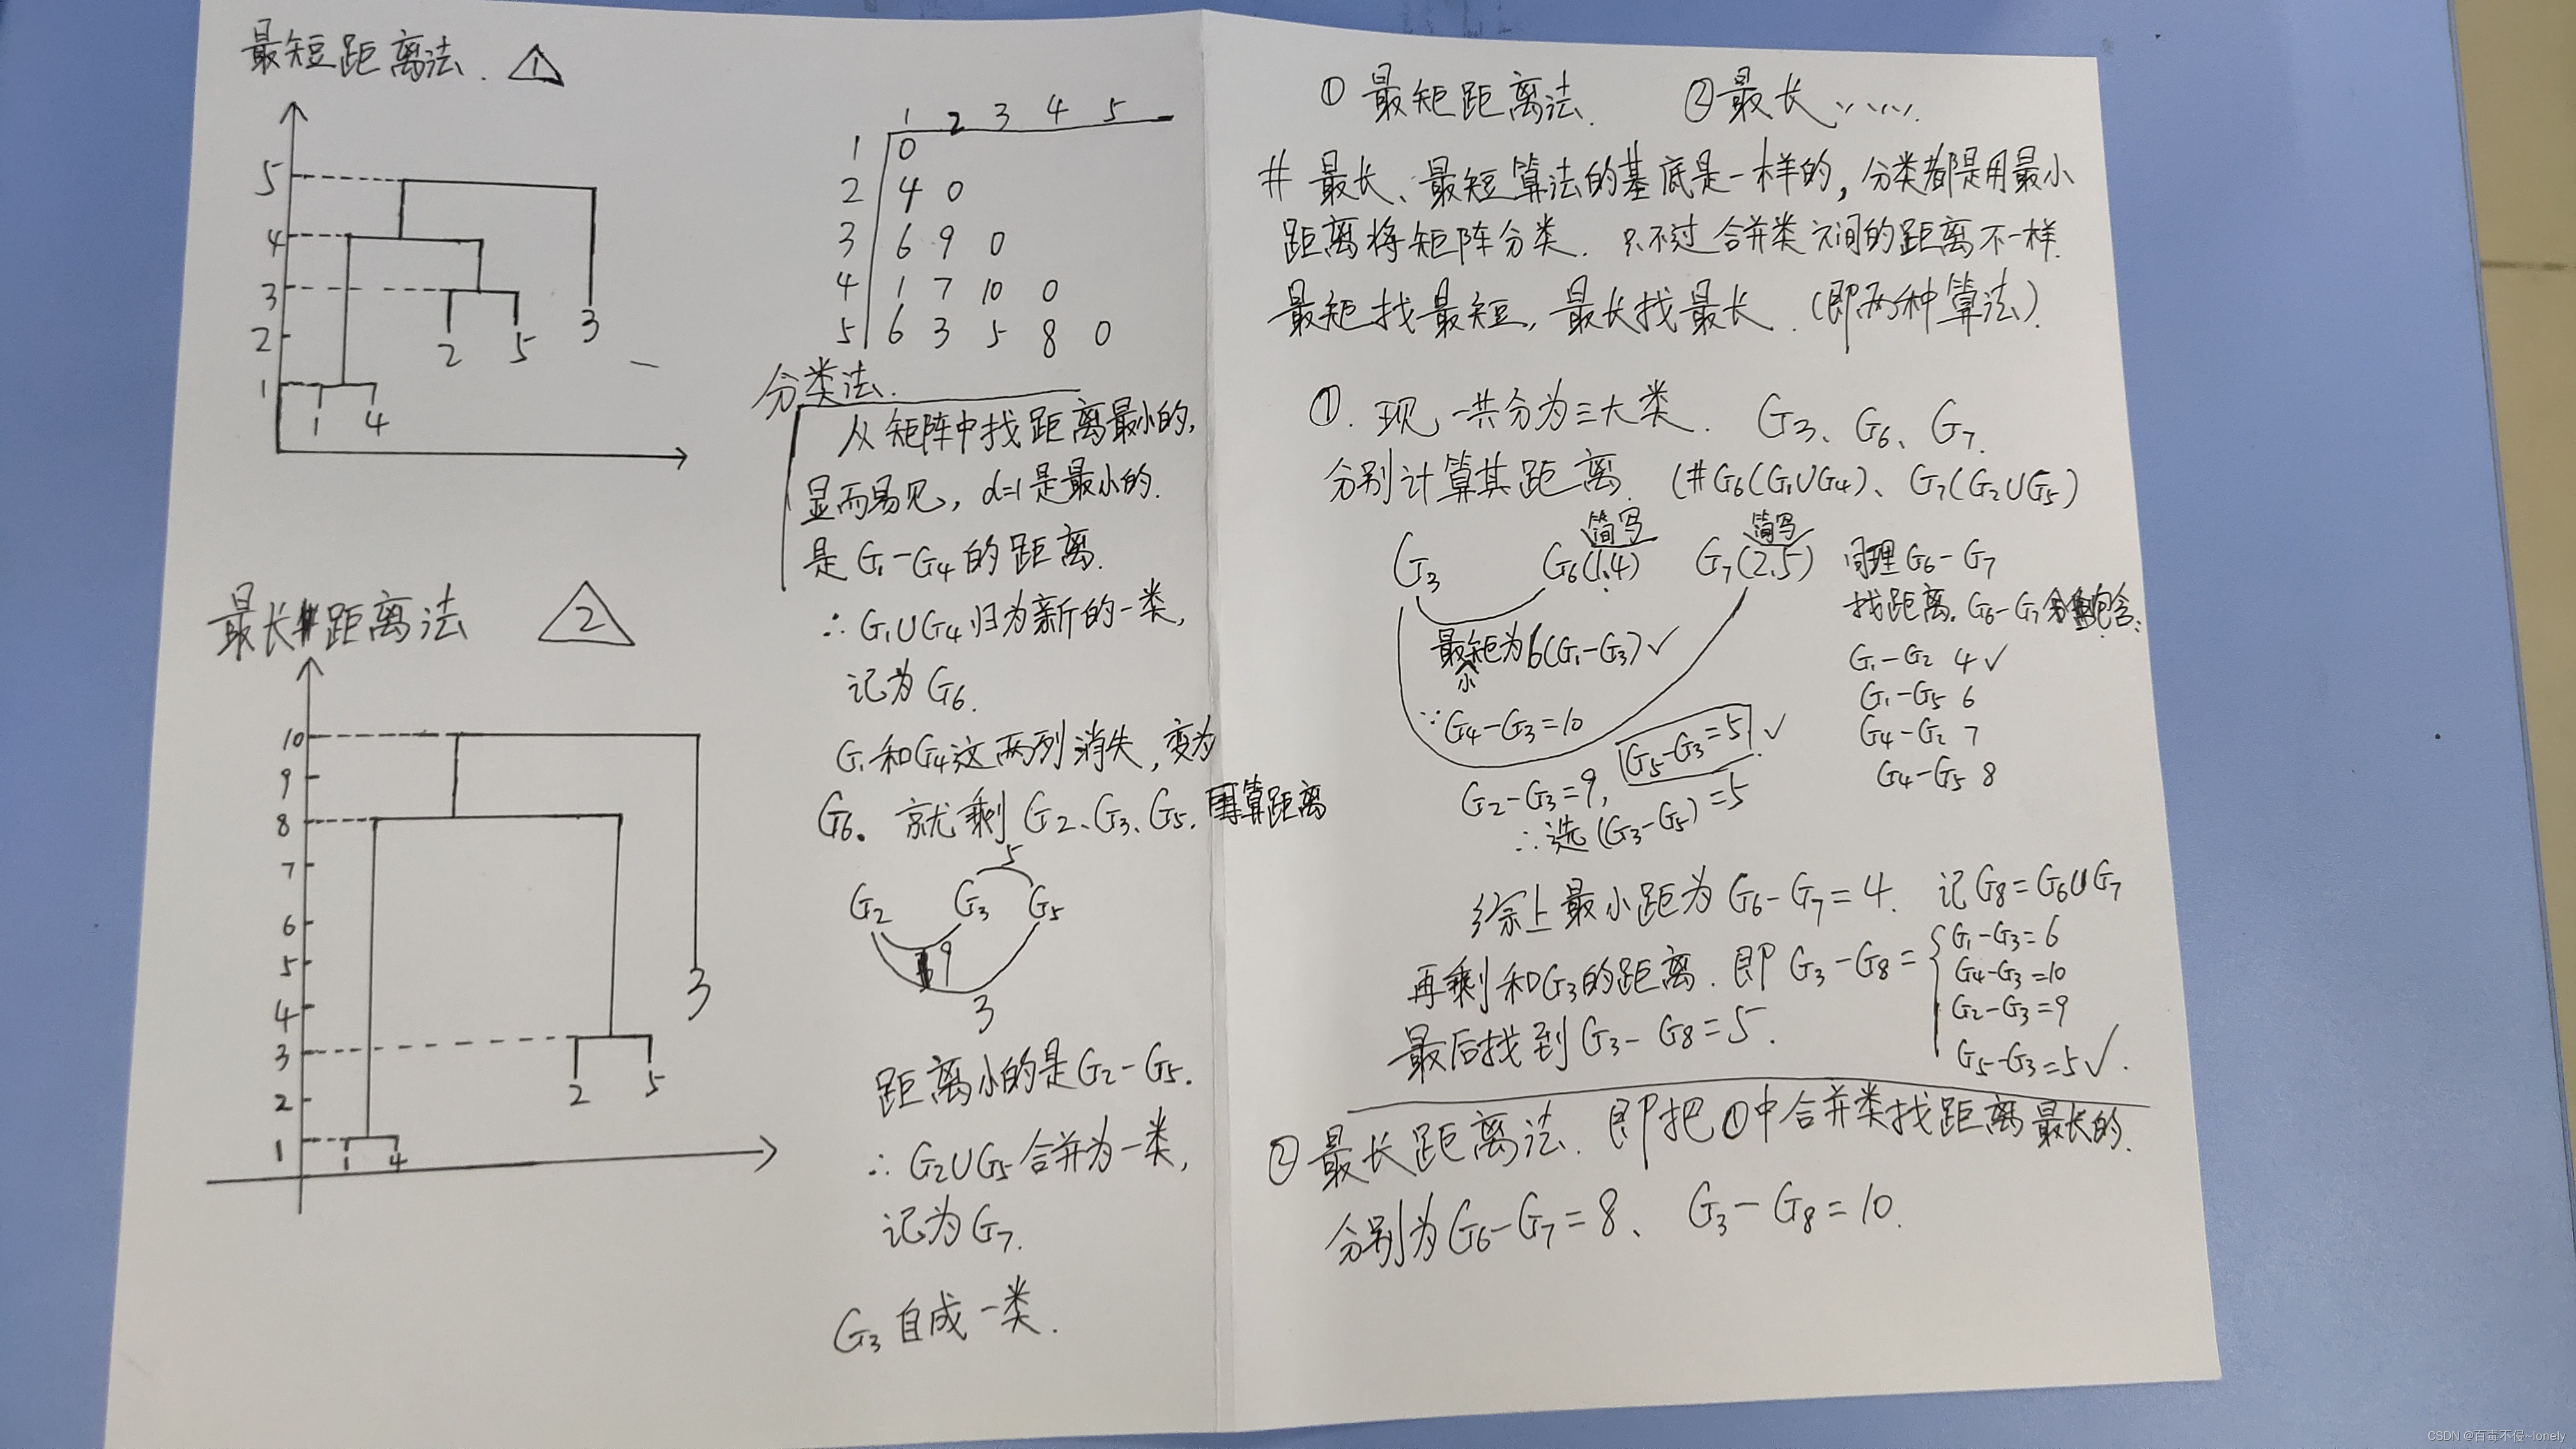 最短距离法. 1
5
4
3
2
1
2 5
3
1 4
1 2 3 4 5
1 0
2 4 0
3 6 9 0
4 1 7 10 0
5 6 3 5 8 0
分类法.
从矩阵中找距离最小的,
显而易见, d=1是最小的.
是G₁-G₄的距离.
∴G₁∪G₄归为新的一类,
记为G₆.
G₁和G₄这两列消失, 变为
G₆。就剩G₂、G₃、G₅. 再算距离
5
G₂ G₃ G₅
9
3
距离小的是G₂-G₅.
∴G₂∪G₅合并为一类,
记为G₇.
G₃自成一类.
最长距离法 2
10
9
8
7
6
5
4
3
2
1
3
2 5
1 4
① 最矩距离法. ②最长.....
# 最长、最短算法的基底是一样的, 分类都是用最小
距离将矩阵分类. 只不过合并类之间的距离不一样.
最矩找最短, 最长找最长. (即两种算法).
①. 现一共分为三大类. G₃、G₆、G₇.
分别计算其距离. (#G₆(G₁∪G₄)、G₇(G₂∪G₅)
简写 简写
G₃ G₆(1,4) G₇(2,5)
最矩为6(G₁-G₃)✓
小
∵G₄-G₃=10
G₂-G₃=9, G₅-G₃=5 ✓
∴选(G₃-G₅)=5
同理G₆-G₇
找距离. G₆-G₇包含:
G₁-G₂ 4✓
G₁-G₅ 6
G₄-G₂ 7
G₄-G₅ 8
综上最小距为G₆-G₇=4. 记G₈=G₆∪G₇
再剩和G₃的距离. 即G₃-G₈={
G₁-G₃=6
G₄-G₃=10
G₂-G₃=9
G₅-G₃=5✓.
最后找到G₃-G₈=5.
②最长距离法. 即把①中合并类找距离最长的.
分别为G₆-G₇=8、 G₃-G₈=10.
CSDN @百毒不侵~lonely